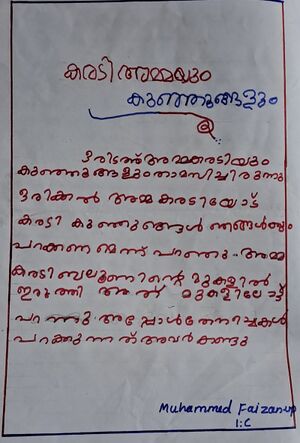 കരടി അമ്മയും
കുഞ്ഞുങ്ങളും
ഒരിടത്ത് അമ്മകരടിയും
കുഞ്ഞുങ്ങളും താമസിച്ചിരുന്നു
ഒരിക്കൽ അമ്മ കരടിയോട്
കരടി കുഞ്ഞുങ്ങൾ ഞങ്ങൾക്കും
പറക്കണമെന്ന് പറഞ്ഞു. അമ്മ
കരടി ബലൂണിന്റെ മുകളിൽ
ഇരുത്തി അത് മുകളിലോട്ട്
പറന്നു അപ്പോൾ തേനീച്ചകൾ
പറക്കുന്നത് അവർ കണ്ടു
Muhammed Faizan.vp
1:C